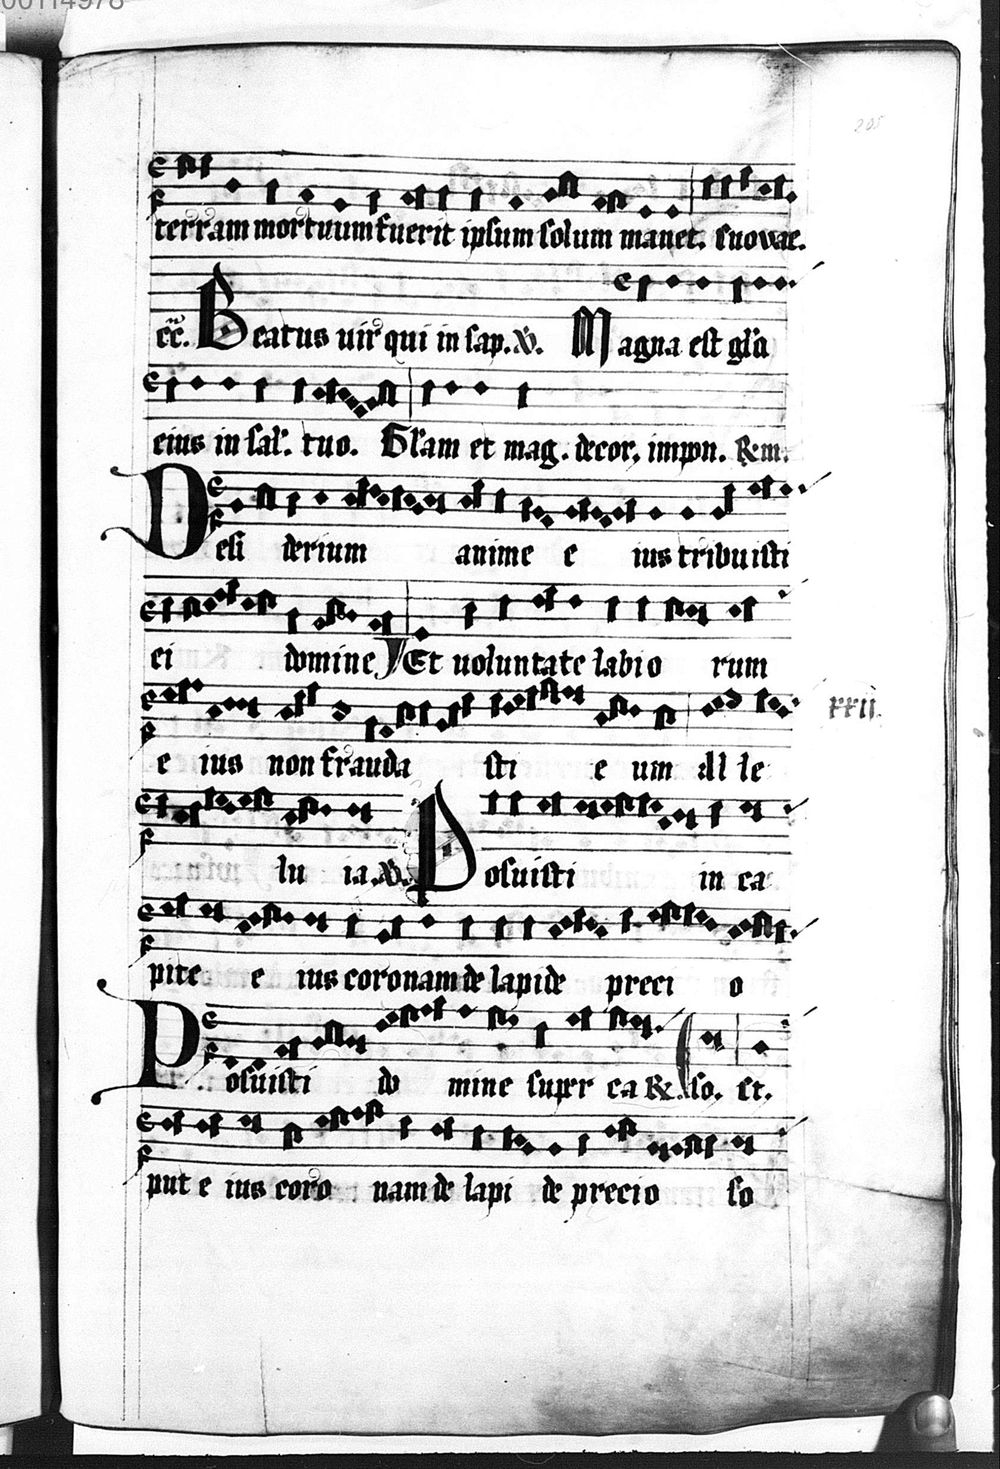 00114978
205
terram mortuum fuerit ipsum solum manet. Euouae.
Beatus uir qui in sap. V. Magna est gl'a
eius in sal'. tuo. Gl'am et mag. decor. impon. Rm.
Desi derium anime e ius tribuisti
ei domine Et uoluntate labio rum
e ius non frauda sti e um all le
xxii.
lu ia. V. Posuisti in ca
pite e ius coronam de lapide preci o
Posuisti do mine super ca R. so. et.
put e ius coro nam de lapi de precio so